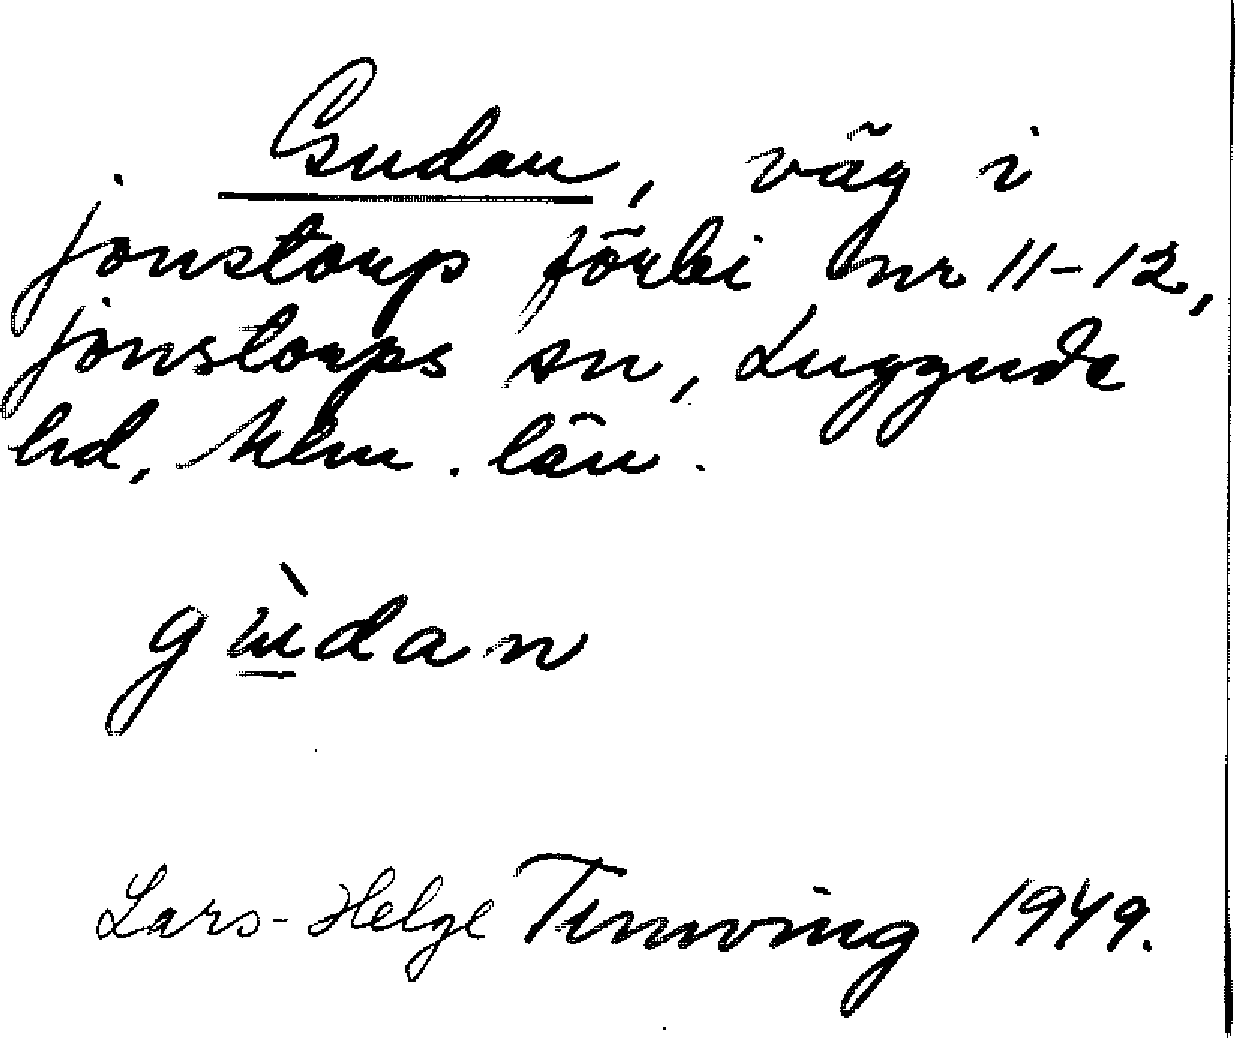 Gudan, väg i
Jonstorp förbi nr 11-12,
Jonstorps sn, Luggude
hd, Mlm. län.
gùdan
Lars-Helge 1949.